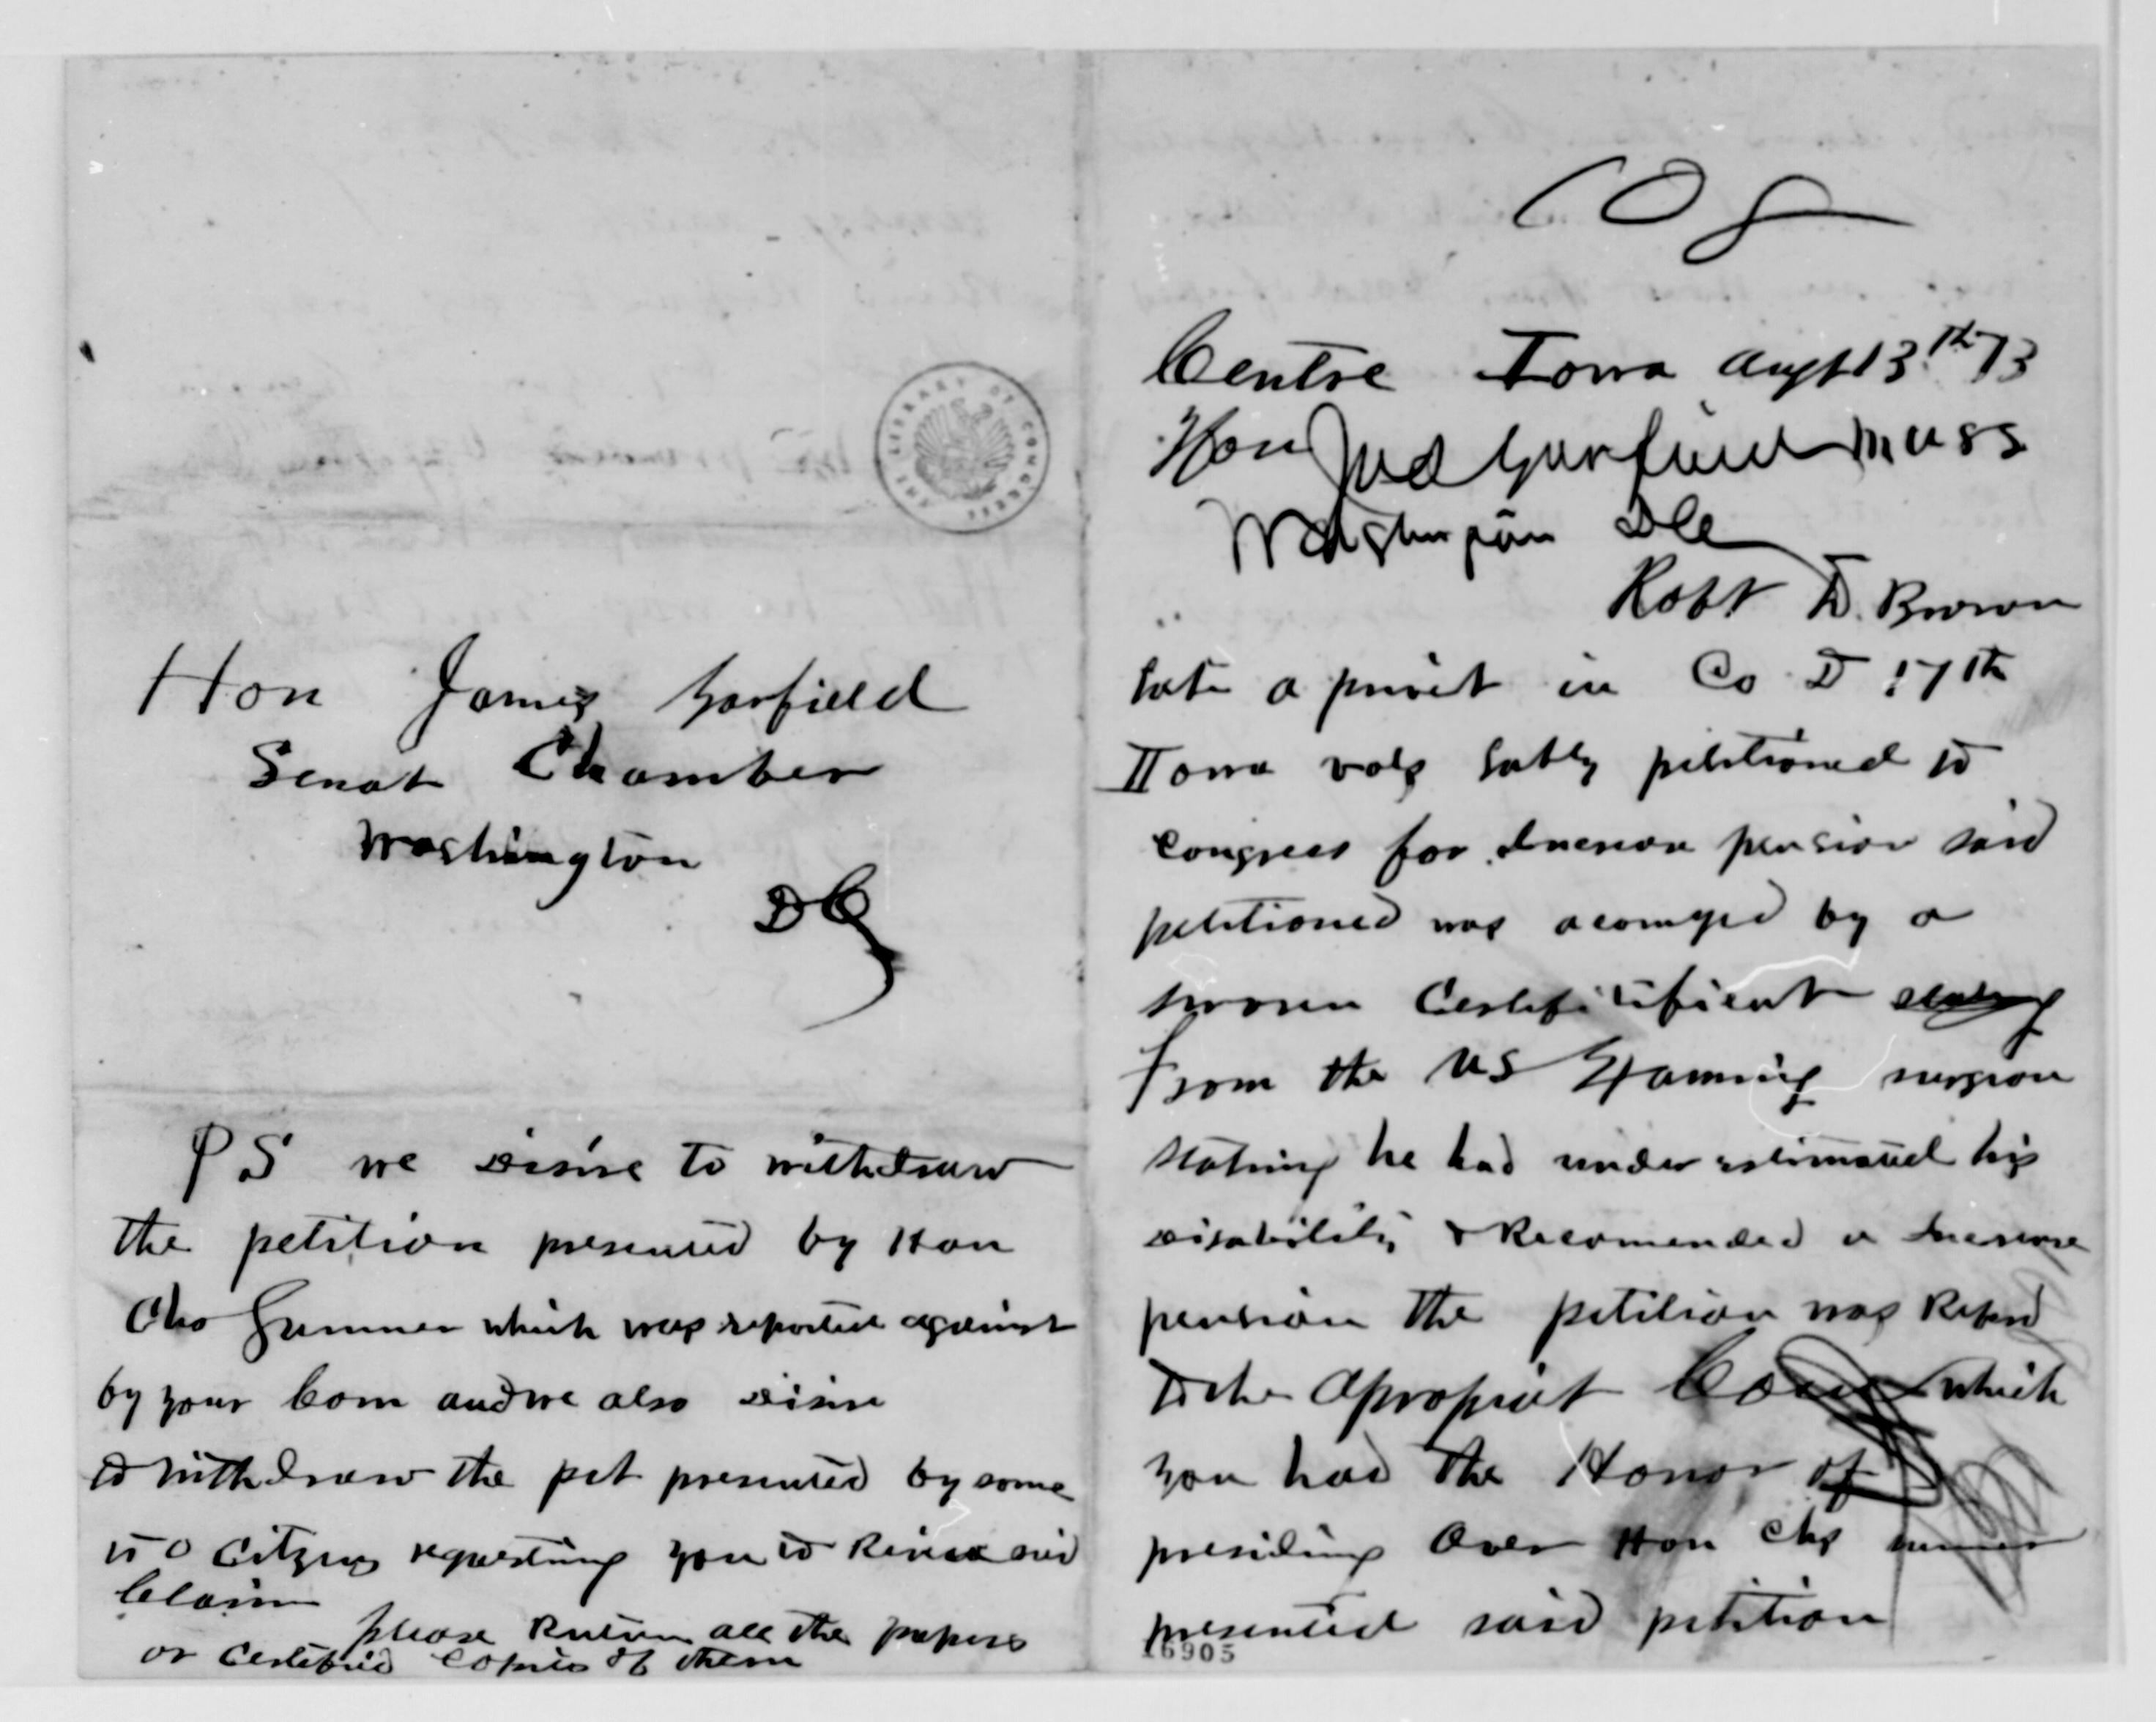 Hon James Garfield
Senat Chamber
Washington
DC
PS we desire to withdraw
the petition presented by Hon
Chs Sumner which was reported against
by your Com and we also desire
to withdraw the pet presented by some
150 Citzens requesting you to said
Claim
please Return all the papers
or Certified Copies of them
THE LIBRARY OF CONGRESS
Centre Iowa Augt 13th 73
Hon Garfield
Washington DC
Robt D. Brown
late a privet in Co D 17th
Iowa vols latly petitioned to
Congress for Increase pension said
petitioned was by a
sworn
From the US surgeon
stating he had under estimated his
disability & Recomended a Increase
pension the petition was Referd
to the Apropriat which
you had the Honor of
presiding Over Hon Chs
presented said petition
16905